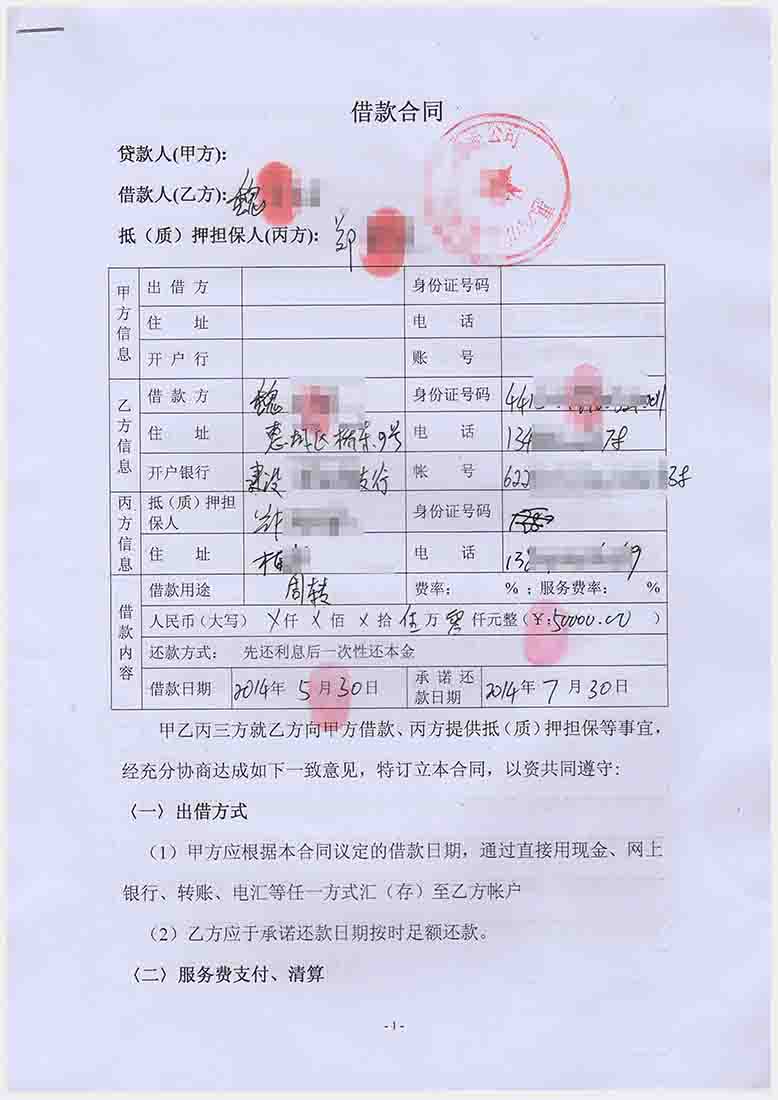 借款合同
贷款人(甲方):
借款人(乙方): 魏
抵（质）押担保人(丙方): 郑
公司
甲方信息
出借方 身份证号码
住 址 电 话
开户行 账 号
乙方信息
借款方 魏 身份证号码 441
住 址 9号 电 话 134
开户银行 建设 支行 帐 号 622
丙方信息
抵（质）押担保人 身份证号码
住 址 电 话 13 9
借款内容
借款用途 周转 费率: % ；服务费率: %
人民币（大写） X仟 X佰 X拾 伍万 零仟元整（￥:50000.00 ）
还款方式: 先还利息后一次性还本金
借款日期 2014年 5月30日 承诺还款日期 2014年 7月30日
甲乙丙三方就乙方向甲方借款、丙方提供抵（质）押担保等事宜，
经充分协商达成如下一致意见，特订立本合同，以资共同遵守:
〈一〉出借方式
（1）甲方应根据本合同议定的借款日期，通过直接用现金、网上
银行、转账、电汇等任一方式汇（存）至乙方帐户
（2）乙方应于承诺还款日期按时足额还款。
〈二〉服务费支付、清算
- 1 -